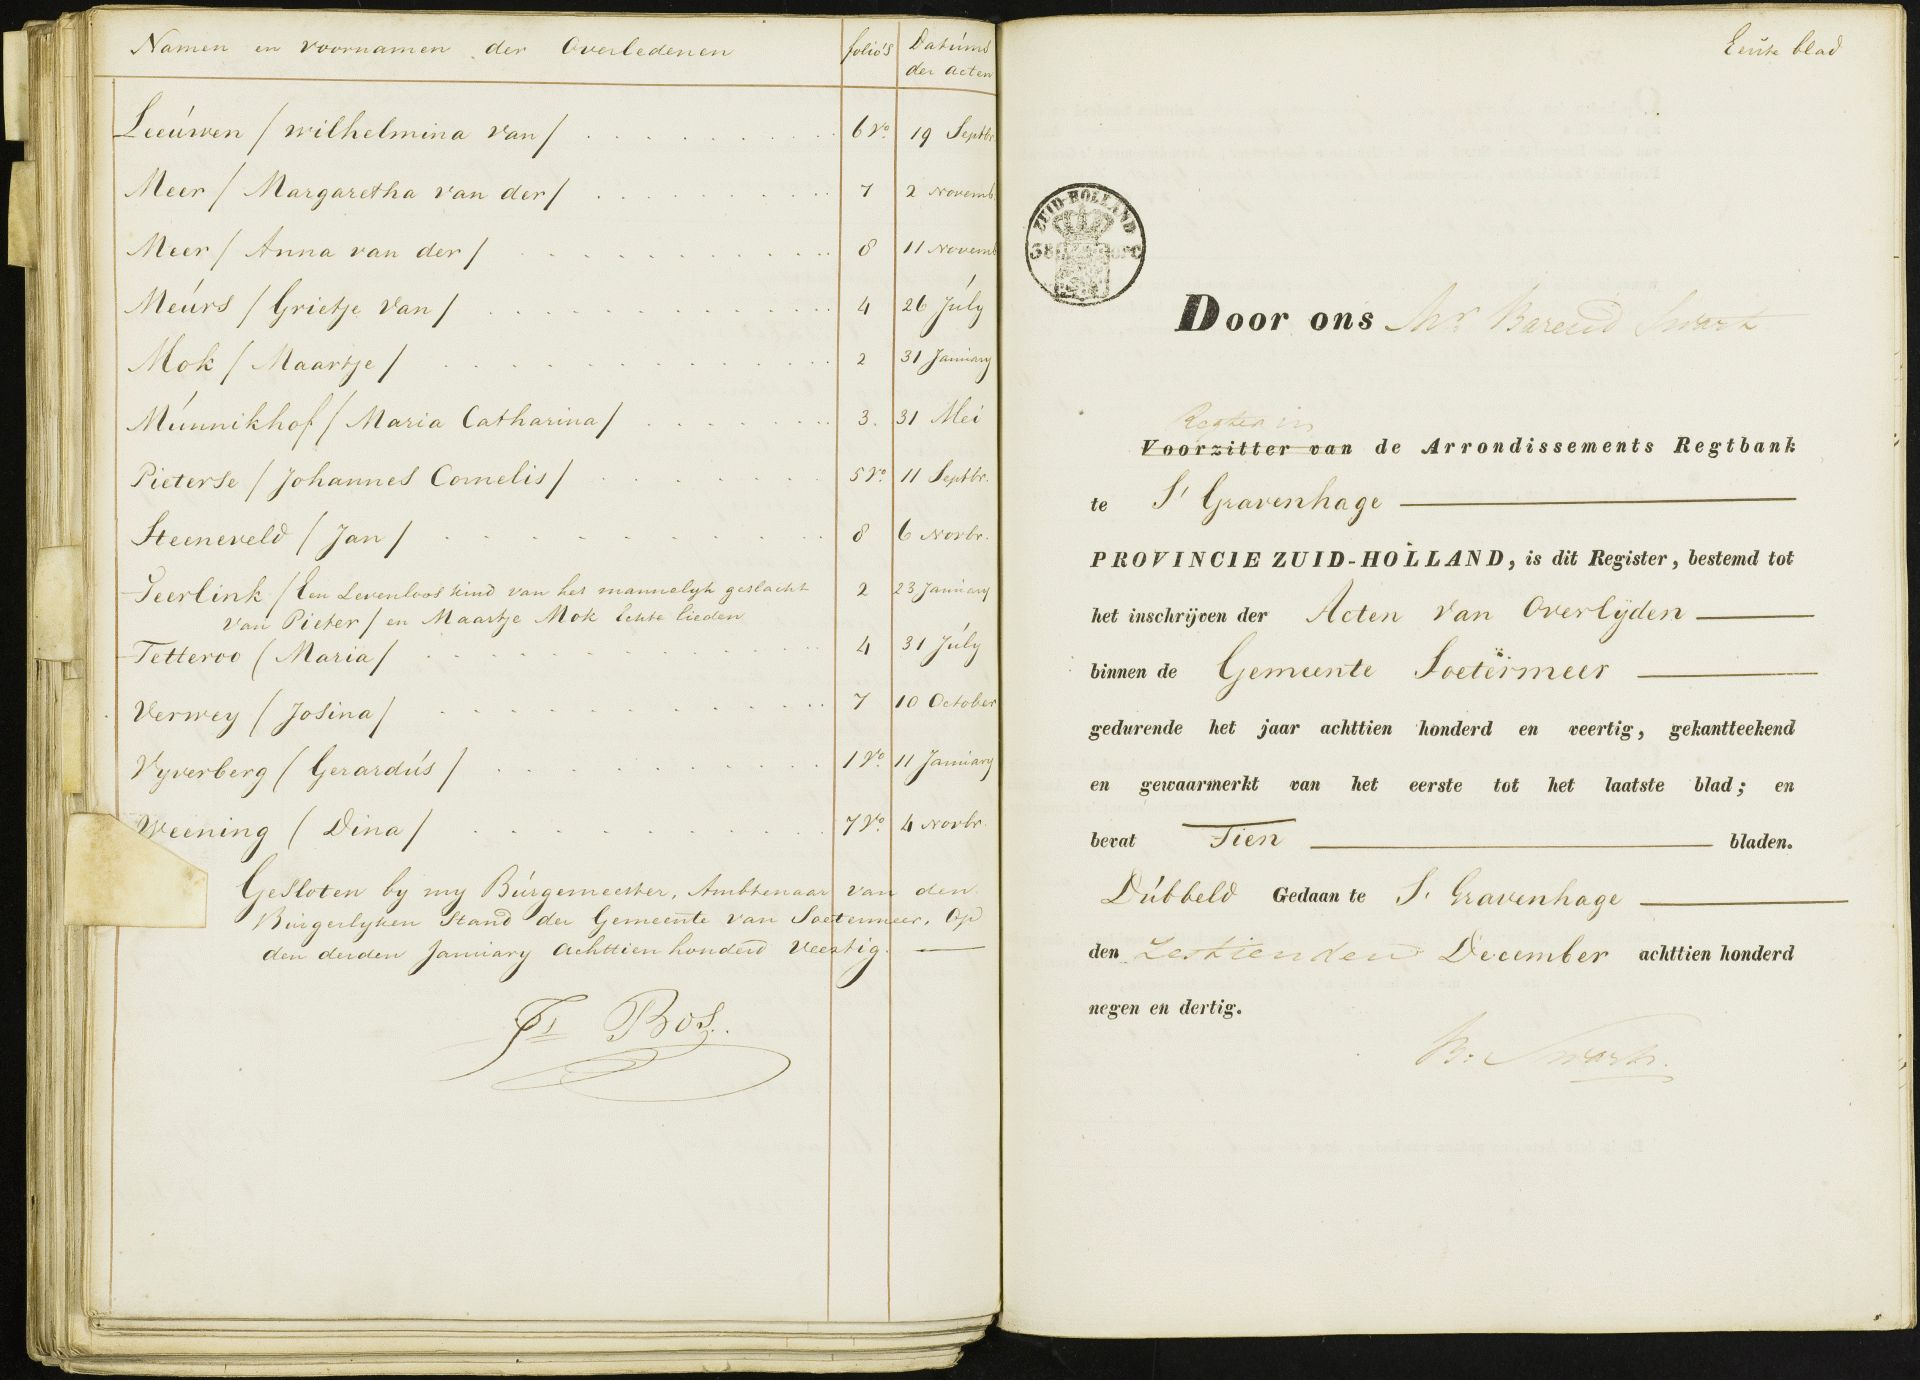 Namen en voornamen der Overledenen folio's Datúms der acten
Leeúwen / wilhelmina van / 6 Vo. 19 Septbr.
Meer / Margaretha van der / 7 2 Novemb.
Meer / Anna van der / 8 11 Novemb
Meúrs / Grietje van / 4 26 Júly
Mok / Maartje / 2 31 Januiary
Múnnikhof / Maria Catharina / 3. 31 Mei
Pieterse / Johannes Cornelis / 5 Vo. 11 Septbr.
Steeneveld / Jan / 8 6 Novbr.
Teerlink / Een Levenloos kind van het mannelyk geslacht 2 23 January
van Pieter / en Maartje Mok Echte lieden
Tetteroo ( Maria / 4 31 Júly
Verwey / Josina / 7 10 October
Vyverberg ( Gerardús / 1 Vo. 11 January
Weening ( Dina / 7 Vo. 4 Novbr.
Gesloten by my Búrgemeester, Ambtenaar van den
Burgerlyken Stand der Gemeente van Soetermeer, Op
den derden January Achttien honderd Veertig.
Bos.
Eerste blad
ZUID-HOLLAND
Door ons Mr. Barend Swart
Regter in
Voorzitter van de Arrondissements Regtbank
te S' Gravenhage
PROVINCIE ZUID-HOLLAND, is dit Register, bestemd tot
het inschrijven der Acten van Overlyden
binnen de Gemeente Soetermeer
gedurende het jaar achttien honderd en veertig, gekantteekend
en gewaarmerkt van het eerste tot het laatste blad; en
bevat Tien bladen.
Dúbbeld Gedaan te S' Gravenhage
den Zestienden December achttien honderd
negen en dertig.
B. Swart.